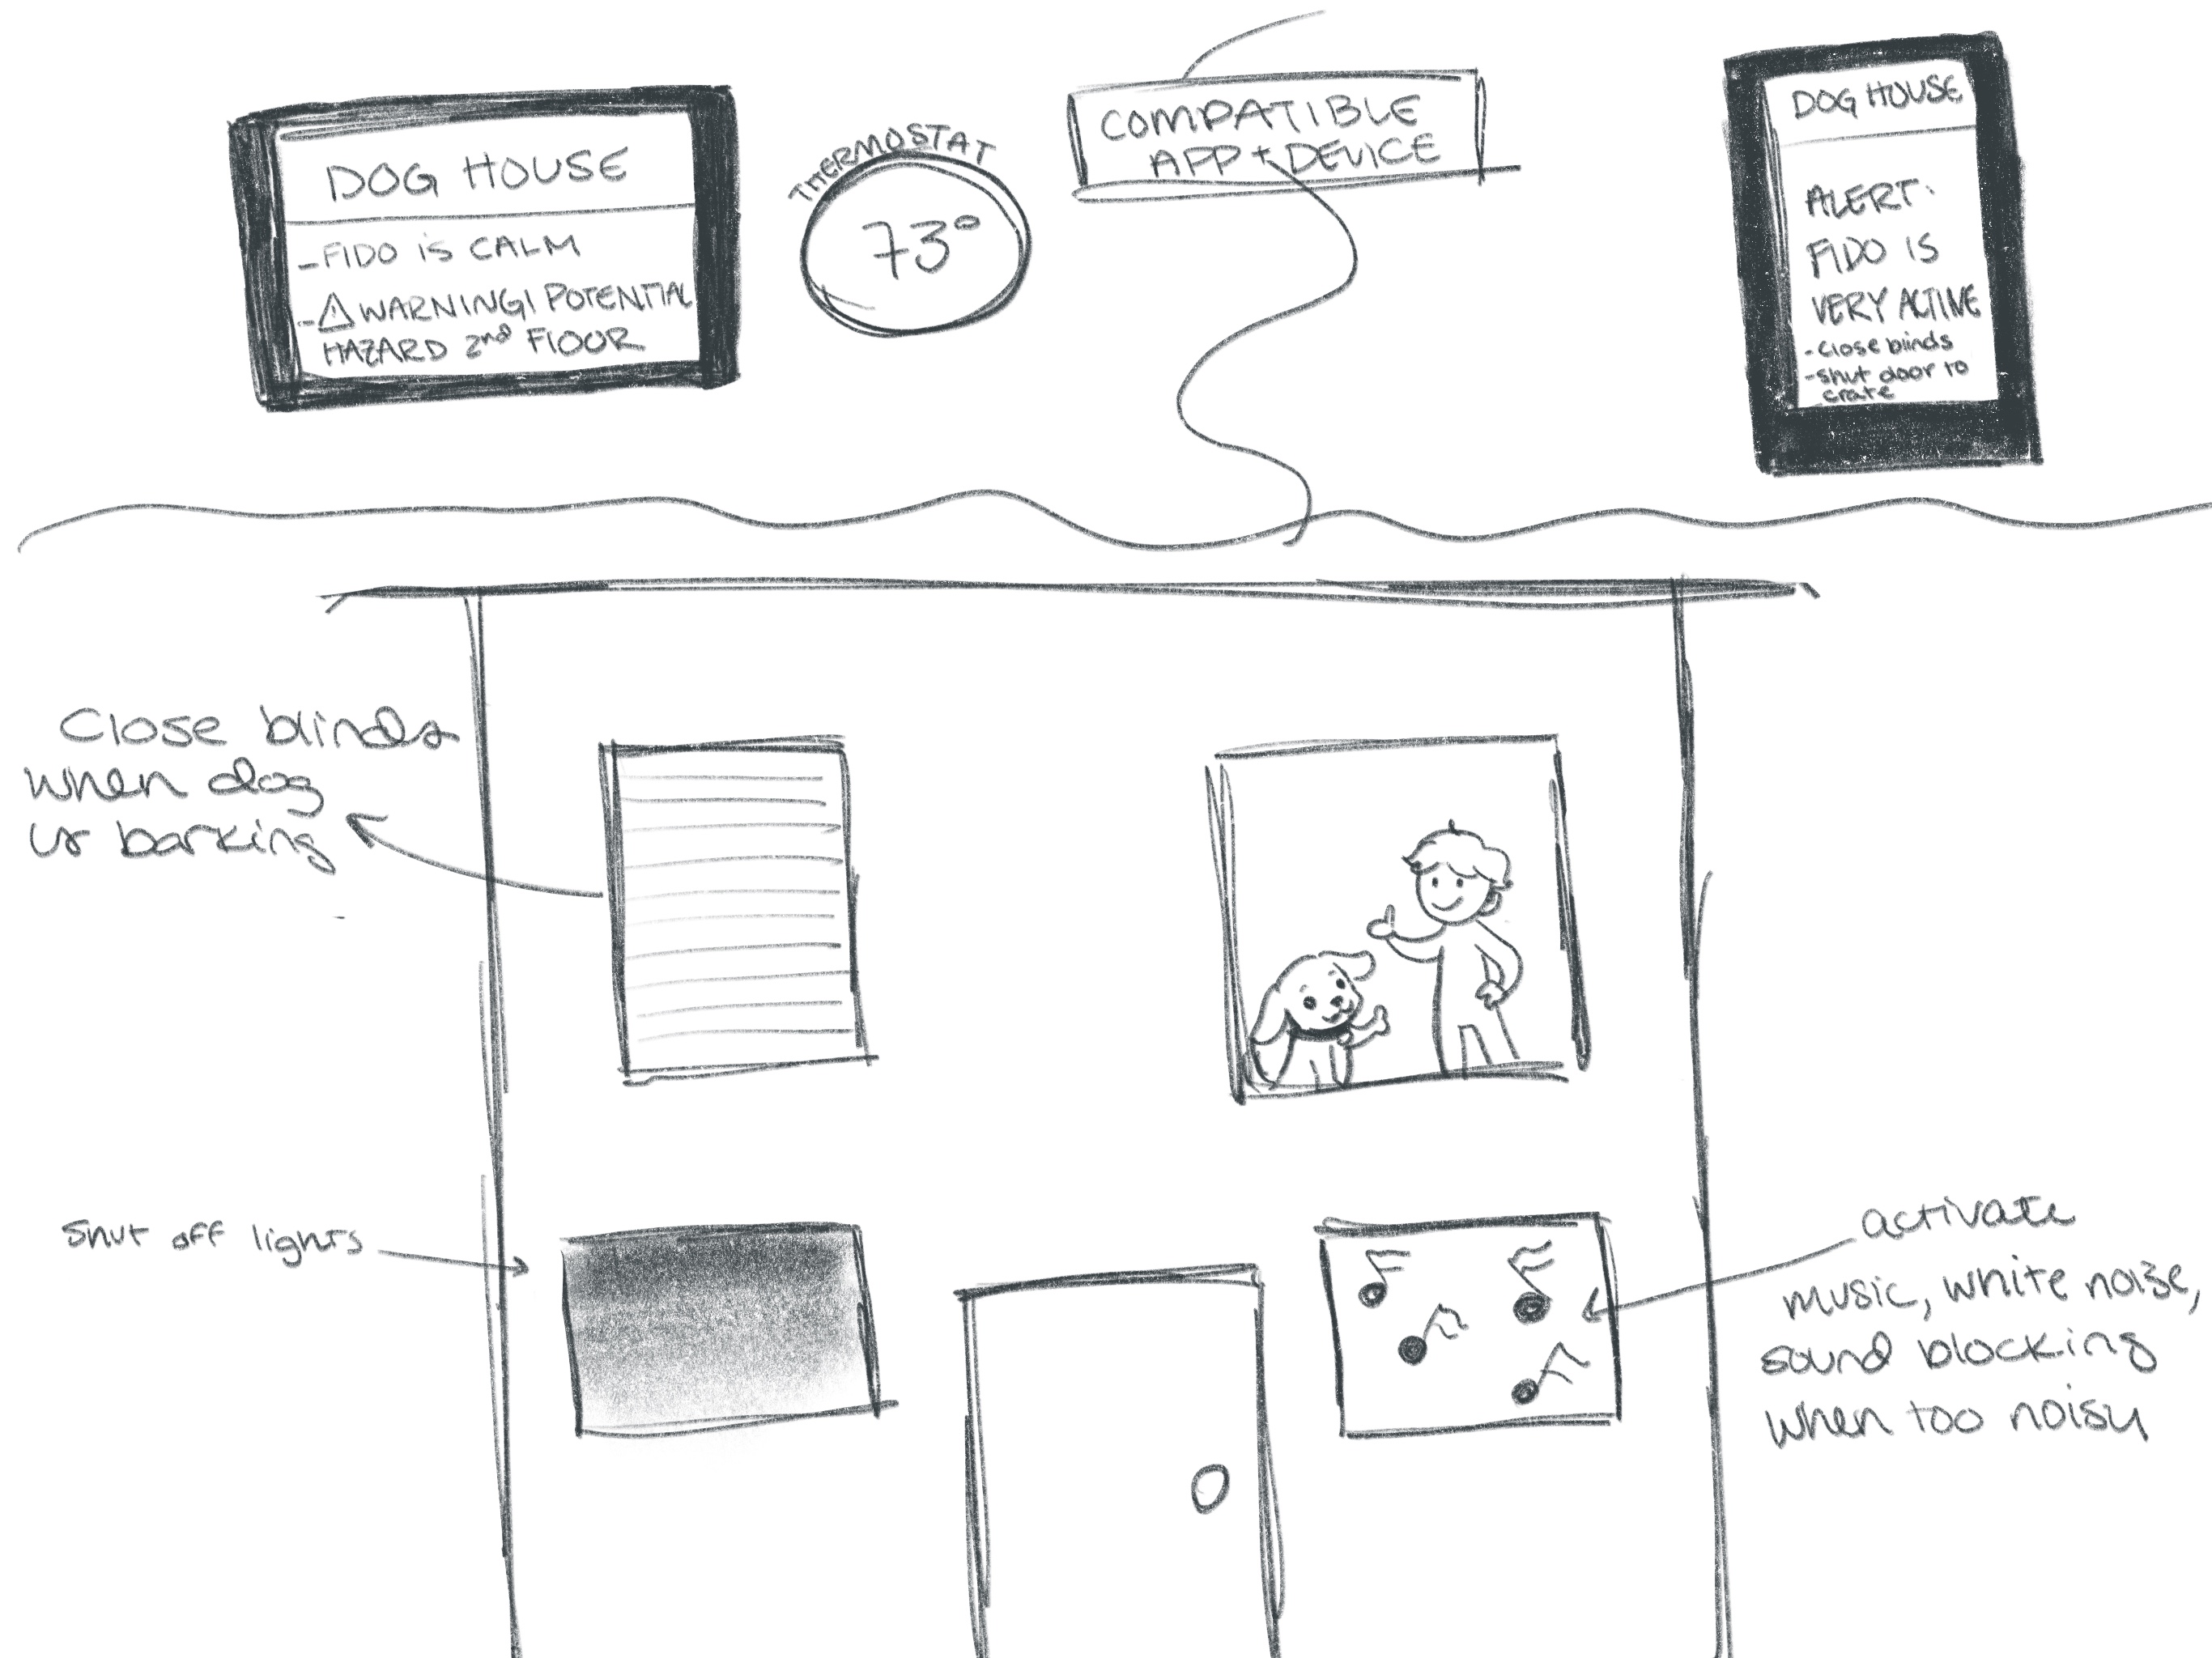 DOG HOUSE
-FIDO IS CALM
-⚠WARNING! POTENTIAL
HAZARD 2nd FLOOR
THERMOSTAT
73°
COMPATIBLE
APP + DEVICE
DOG HOUSE
ALERT:
FIDO IS
VERY ACTIVE
-close blinds
-shut door to
crate
Close blinds
when dog
is barking
shut off lights
activate
music, white noise,
sound blocking
when too noisy